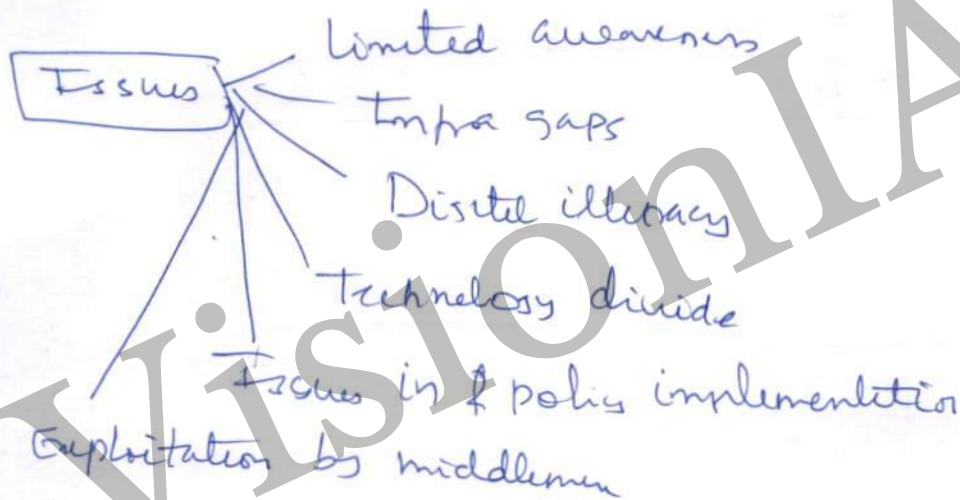 Limited awareness
Issues
Infra gaps
Digital illiteracy
Technology divide
Issues in policy implementation
Exploitation by middlemen
VisionIA